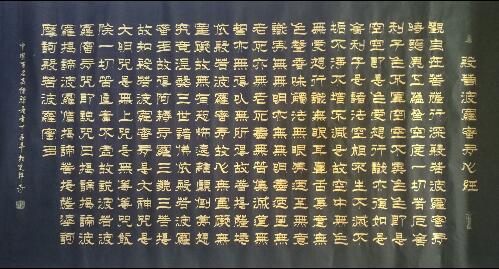 般若波羅蜜多心經
觀自在菩薩行深般若波羅蜜多
時照見五蘊皆空度一切苦厄舍
利子色不異空空不異色色即是
空空即是色受想行識亦復如是
舍利子是諸法空相不生不滅不
垢不淨不增不減是故空中無色
無受想行識無眼耳鼻舌身意無
色聲香味觸法無眼界乃至無意
識界無無明亦無無明盡乃至無
老死亦無老死盡無苦集滅道無
智亦無得以無所得故菩提薩埵
依般若波羅蜜多故心無罣礙無
罣礙故無有恐怖遠離顛倒夢想
究竟涅槃三世諸佛依般若波羅
蜜多故得阿耨多羅三藐三菩提
故知般若波羅蜜多是大神咒是
大明咒是無上咒是無等等咒能
除一切苦真實不虛故說般若波
羅蜜多咒即說咒曰揭諦揭諦波
羅揭諦波羅僧揭諦菩提薩婆訶
摩訶般若波羅蜜多